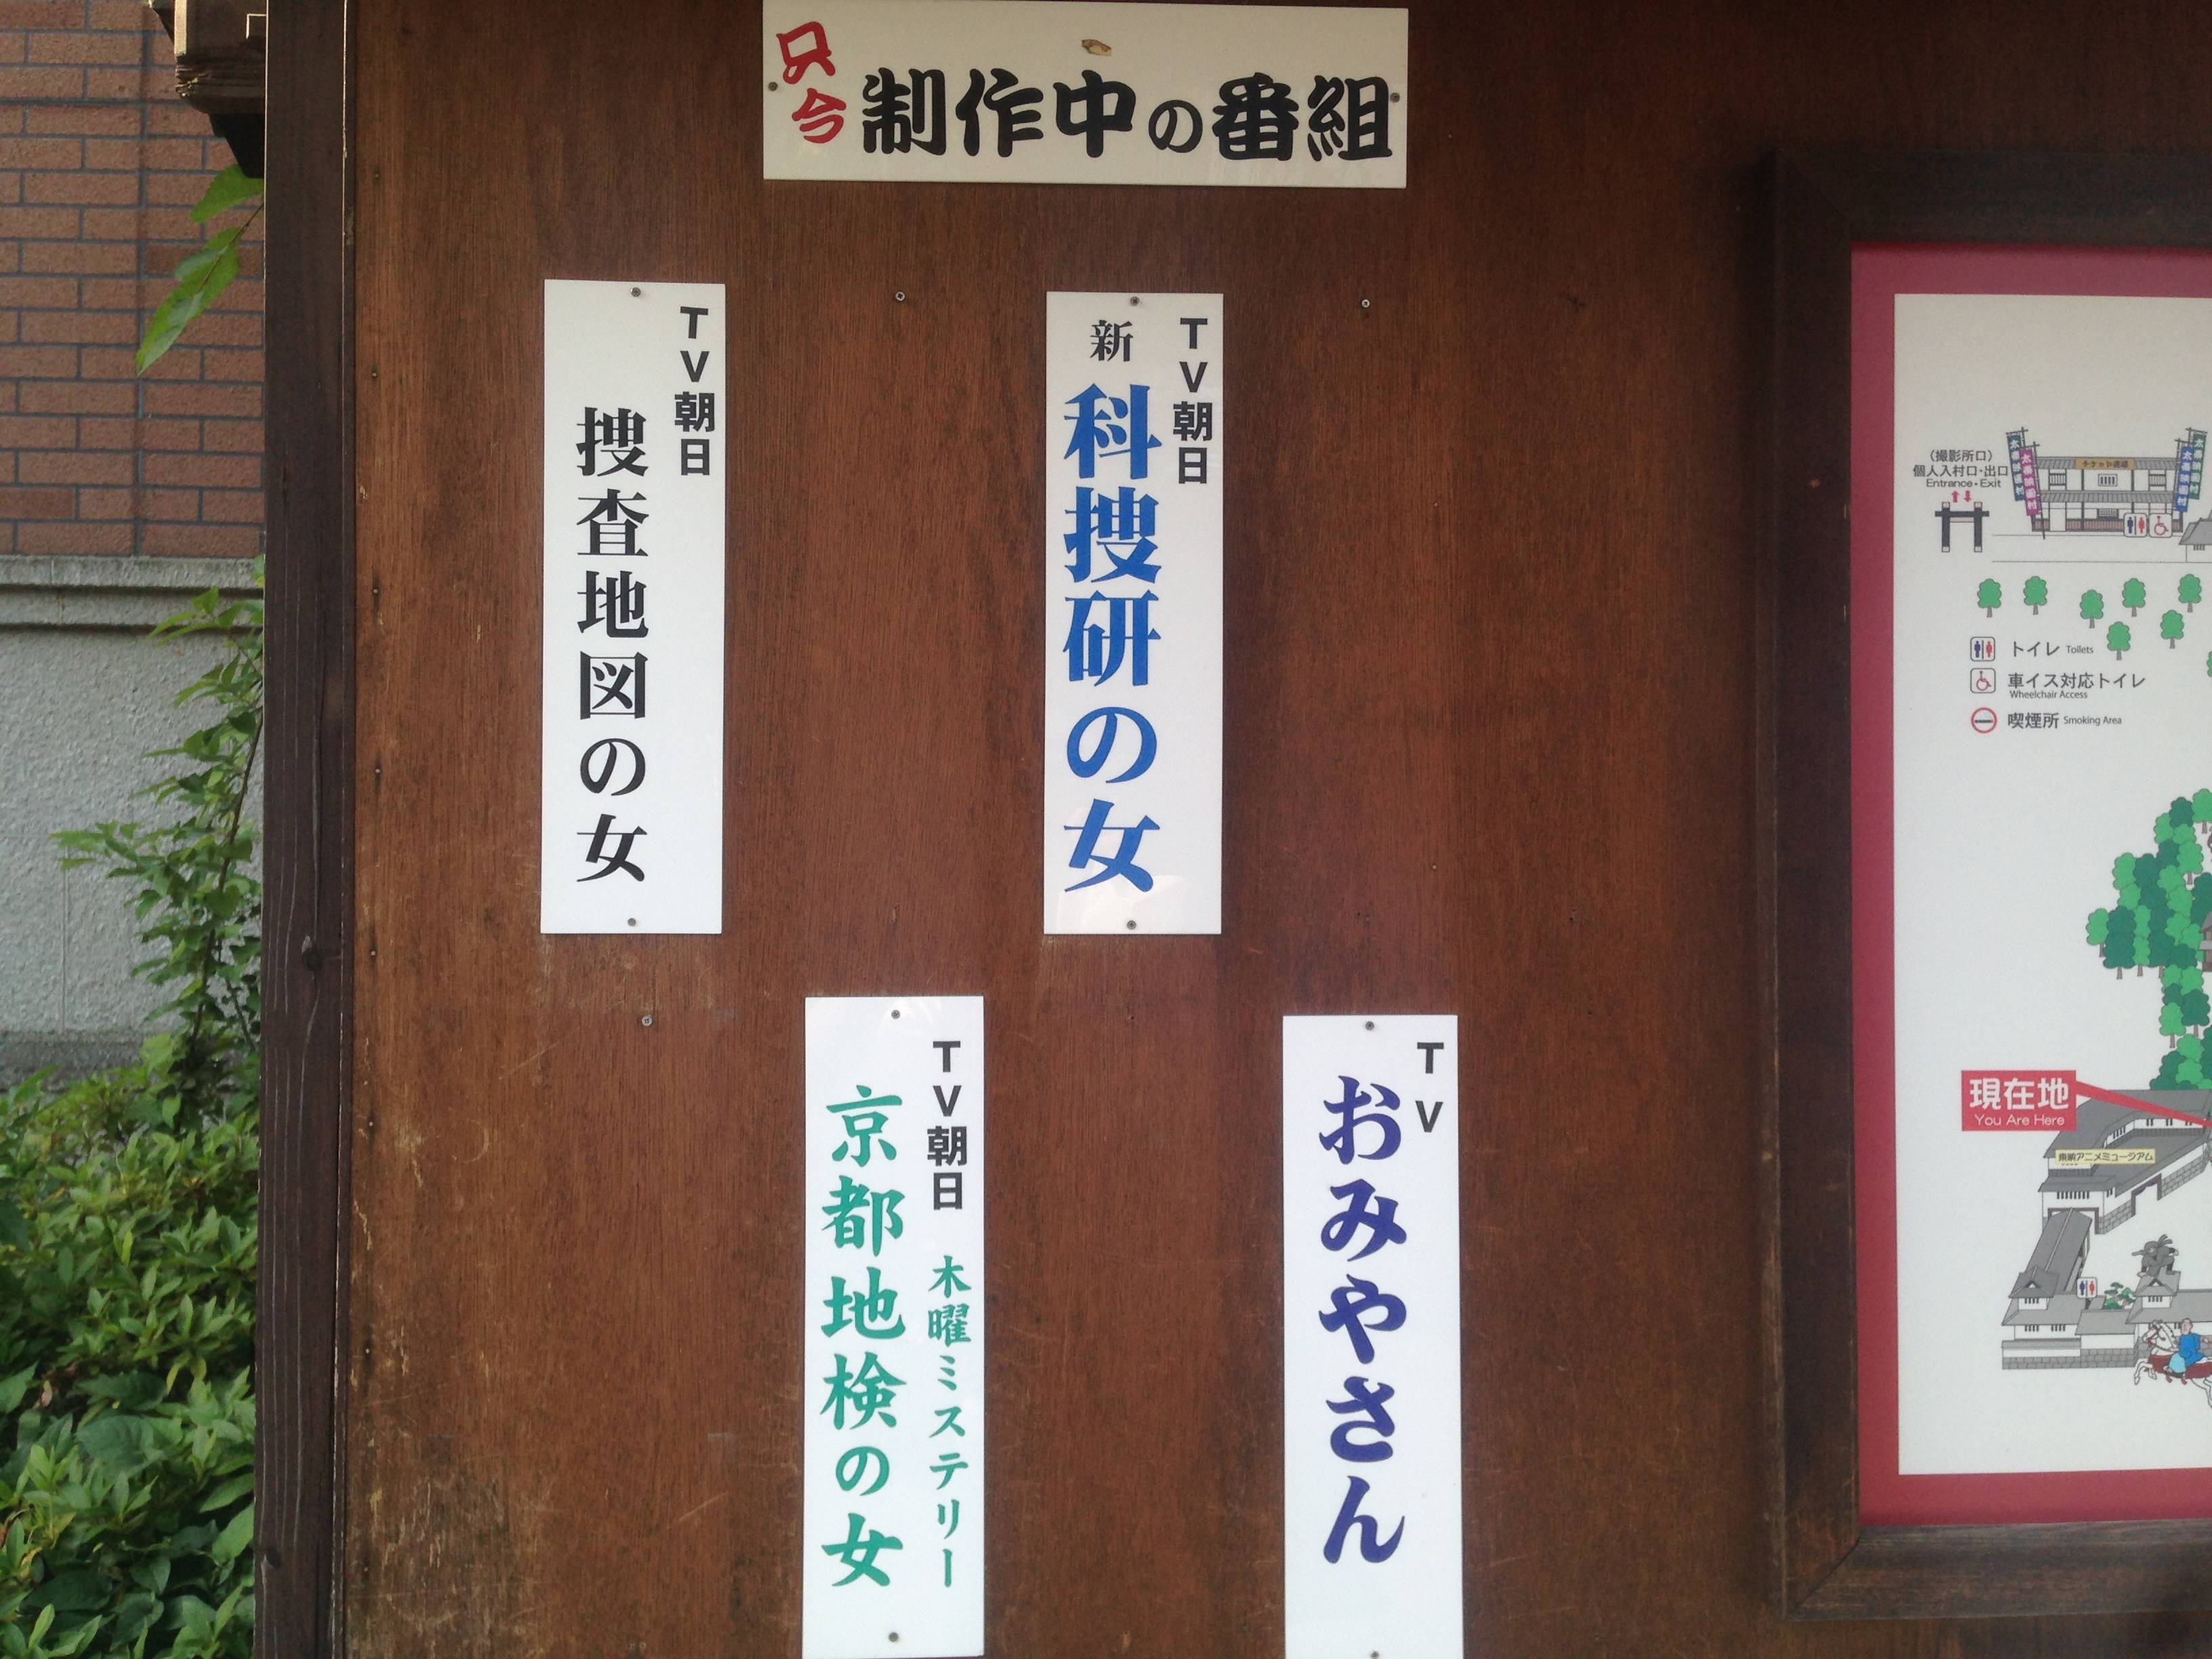 只今 制作中の番組
TV朝日
新 科捜研の女
TV朝日
捜査地図の女
TV
おみやさん
TV朝日 木曜ミステリー
京都地検の女
(撮影所口)
個人入村口・出口
Entrance・Exit
トイレ Toilets
車イス対応トイレ
Wheelchair Access
喫煙所 Smoking Area
現在地
You Are Here
東映アニメミュージアム